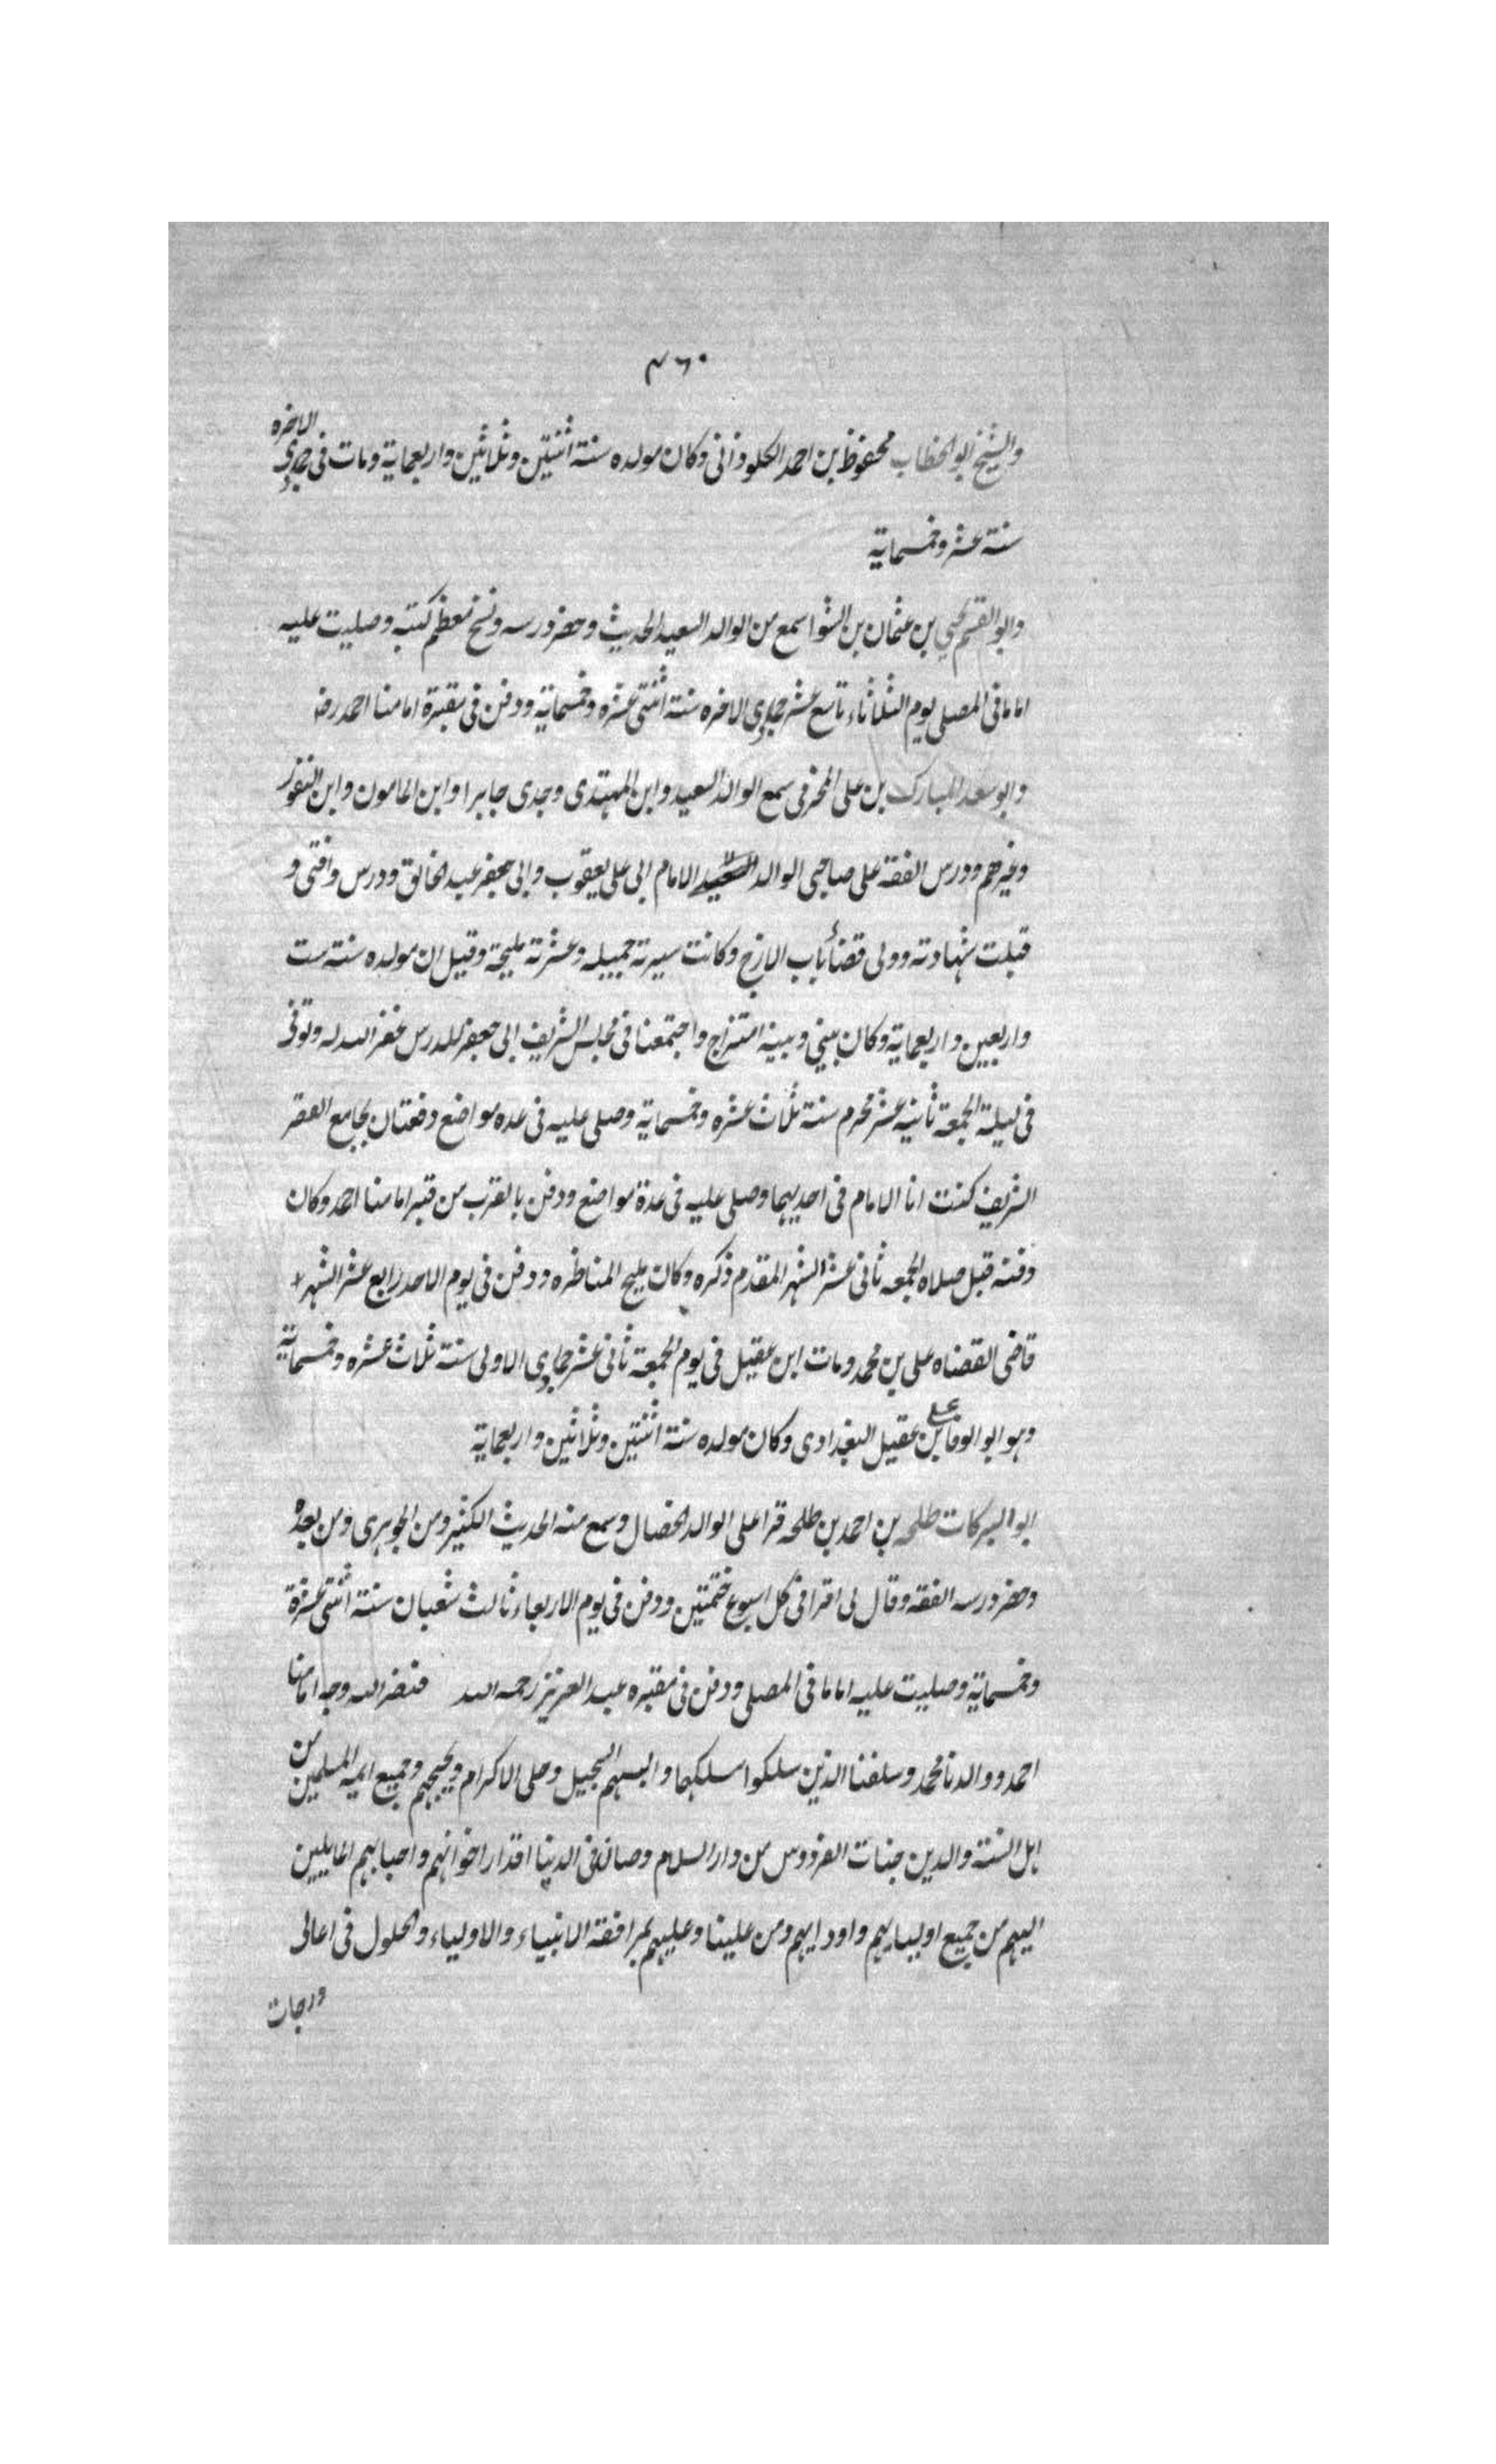 ٤٦٠
والشيخ ابو الخطاب محفوظ بن احمد الكلوذانى وكان مولده سنة اثنتين وثلاثين واربعماية ومات فى جمادى الاخره
سنة عشر وخمسماية
وابو القسم يحيى بن عثمان بن الشوا سمع من الوالد السعيد الحديث وحضر درسه ونسخ معظم كتبه وصليت عليه
اماما فى المصلى يوم الثلاثاء تاسع عشر جمادى الاخره سنة اثنتى عشره وخمسماية ودفن فى مقبرة امامنا احمد رضه
وابو سعد المبارك بن على المخرمى سمع الوالد السعيد وابن المهتدى وجدى جابرا وابن المامون وابن النقور
وغيرهم ودرس الفقه على صاحبى الوالد السعيد الامام ابى على يعقوب وابى جعفر عبد الخالق ودرس وافتى و
قبلت شهادته وولى قضاء باب الازج وكانت سيرته جميله وعشرته مليحة وقيل ان مولده سنة ست
واربعين واربعماية وكان بينى وبينه امتزاج واجتمعنا فى مجلس الشريف ابى جعفر للدرس غفر الله له وتوفى
فى ليلة الجمعة ثانيه عشر محرم سنة ثلاث عشره وخمسماية وصلى عليه فى عده مواضع دفعتان بجامع القصر
الشريف كنت انا الامام فى احديهما وصلى عليه فى عدة مواضع ودفن بالقرب من قبر امامنا احمد وكان
دفنه قبل صلاه الجمعه ثانى عشر الشهر المقدم ذكره وكان مليح المناظره ودفن فى يوم الاحد رابع عشر الشهر
قاضى القضاه على بن محمد ومات ابن عقيل فى يوم الجمعة ثانى عشر جمادى الاولى سنة ثلاث عشره وخمسماية
وهو ابو الوفا على بن عقيل البغدادى وكان مولده سنة اثنتين وثلاثين واربعماية
ابو البركات طلحه بن احمد بن طلحه قرا على الوالد الخصال وسمع منه الحديث الكثير ومن الجوهرى ومن بعده
وحضر درسه الفقه وقال لى اقرا فى كل اسبوع ختمتين ودفن فى يوم الاربعاء ثالث شعبان سنة اثنتى عشرة
وخمسماية وصليت عليه اماما فى المصلى ودفن فى مقبره عبد العزيز رحمه الله فنضر الله وجه امامنا
احمد ووالدنا محمد وسلفنا الذين سلكوا مسلكهما والبسهم التبجيل وحلى الاكرام وجميع ايمه المسلمين من
اهل السنة والدين جنات الفردوس من دار السلام وصان فى الدنيا اقدار اخوانهم واحبابهم المايلين
اليهم من جميع اوليايهم واودايهم ومن علينا وعليهم بمرافقة الانبياء والاولياء والحلول فى اعالى
درجات